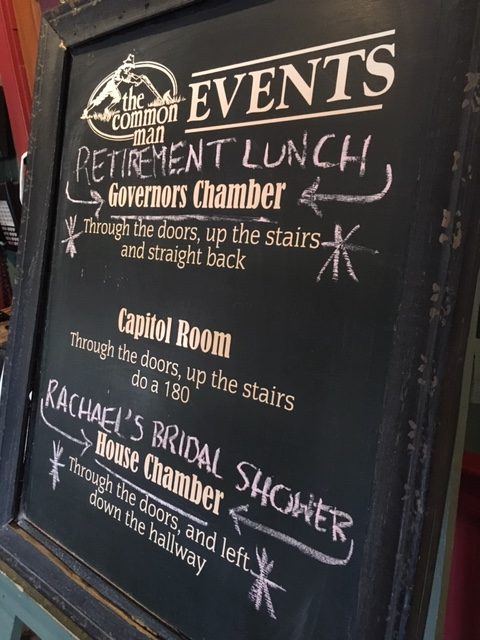 the
common
man
EVENTS
RETIREMENT LUNCH
Governors Chamber
Through the doors, up the stairs
and straight back
Capitol Room
Through the doors, up the stairs
do a 180
RACHAEL'S BRIDAL SHOWER
House Chamber
Through the doors, and left
down the hallway